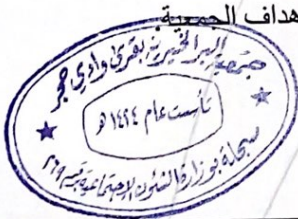 هداف الجمعية
جمعية البر الخيرية بقرى وادي حجر
تأسست عام ١٤٢٤ هـ
مسجلة بوزارة الشئون الاجتماعية برقم ٢٦٩